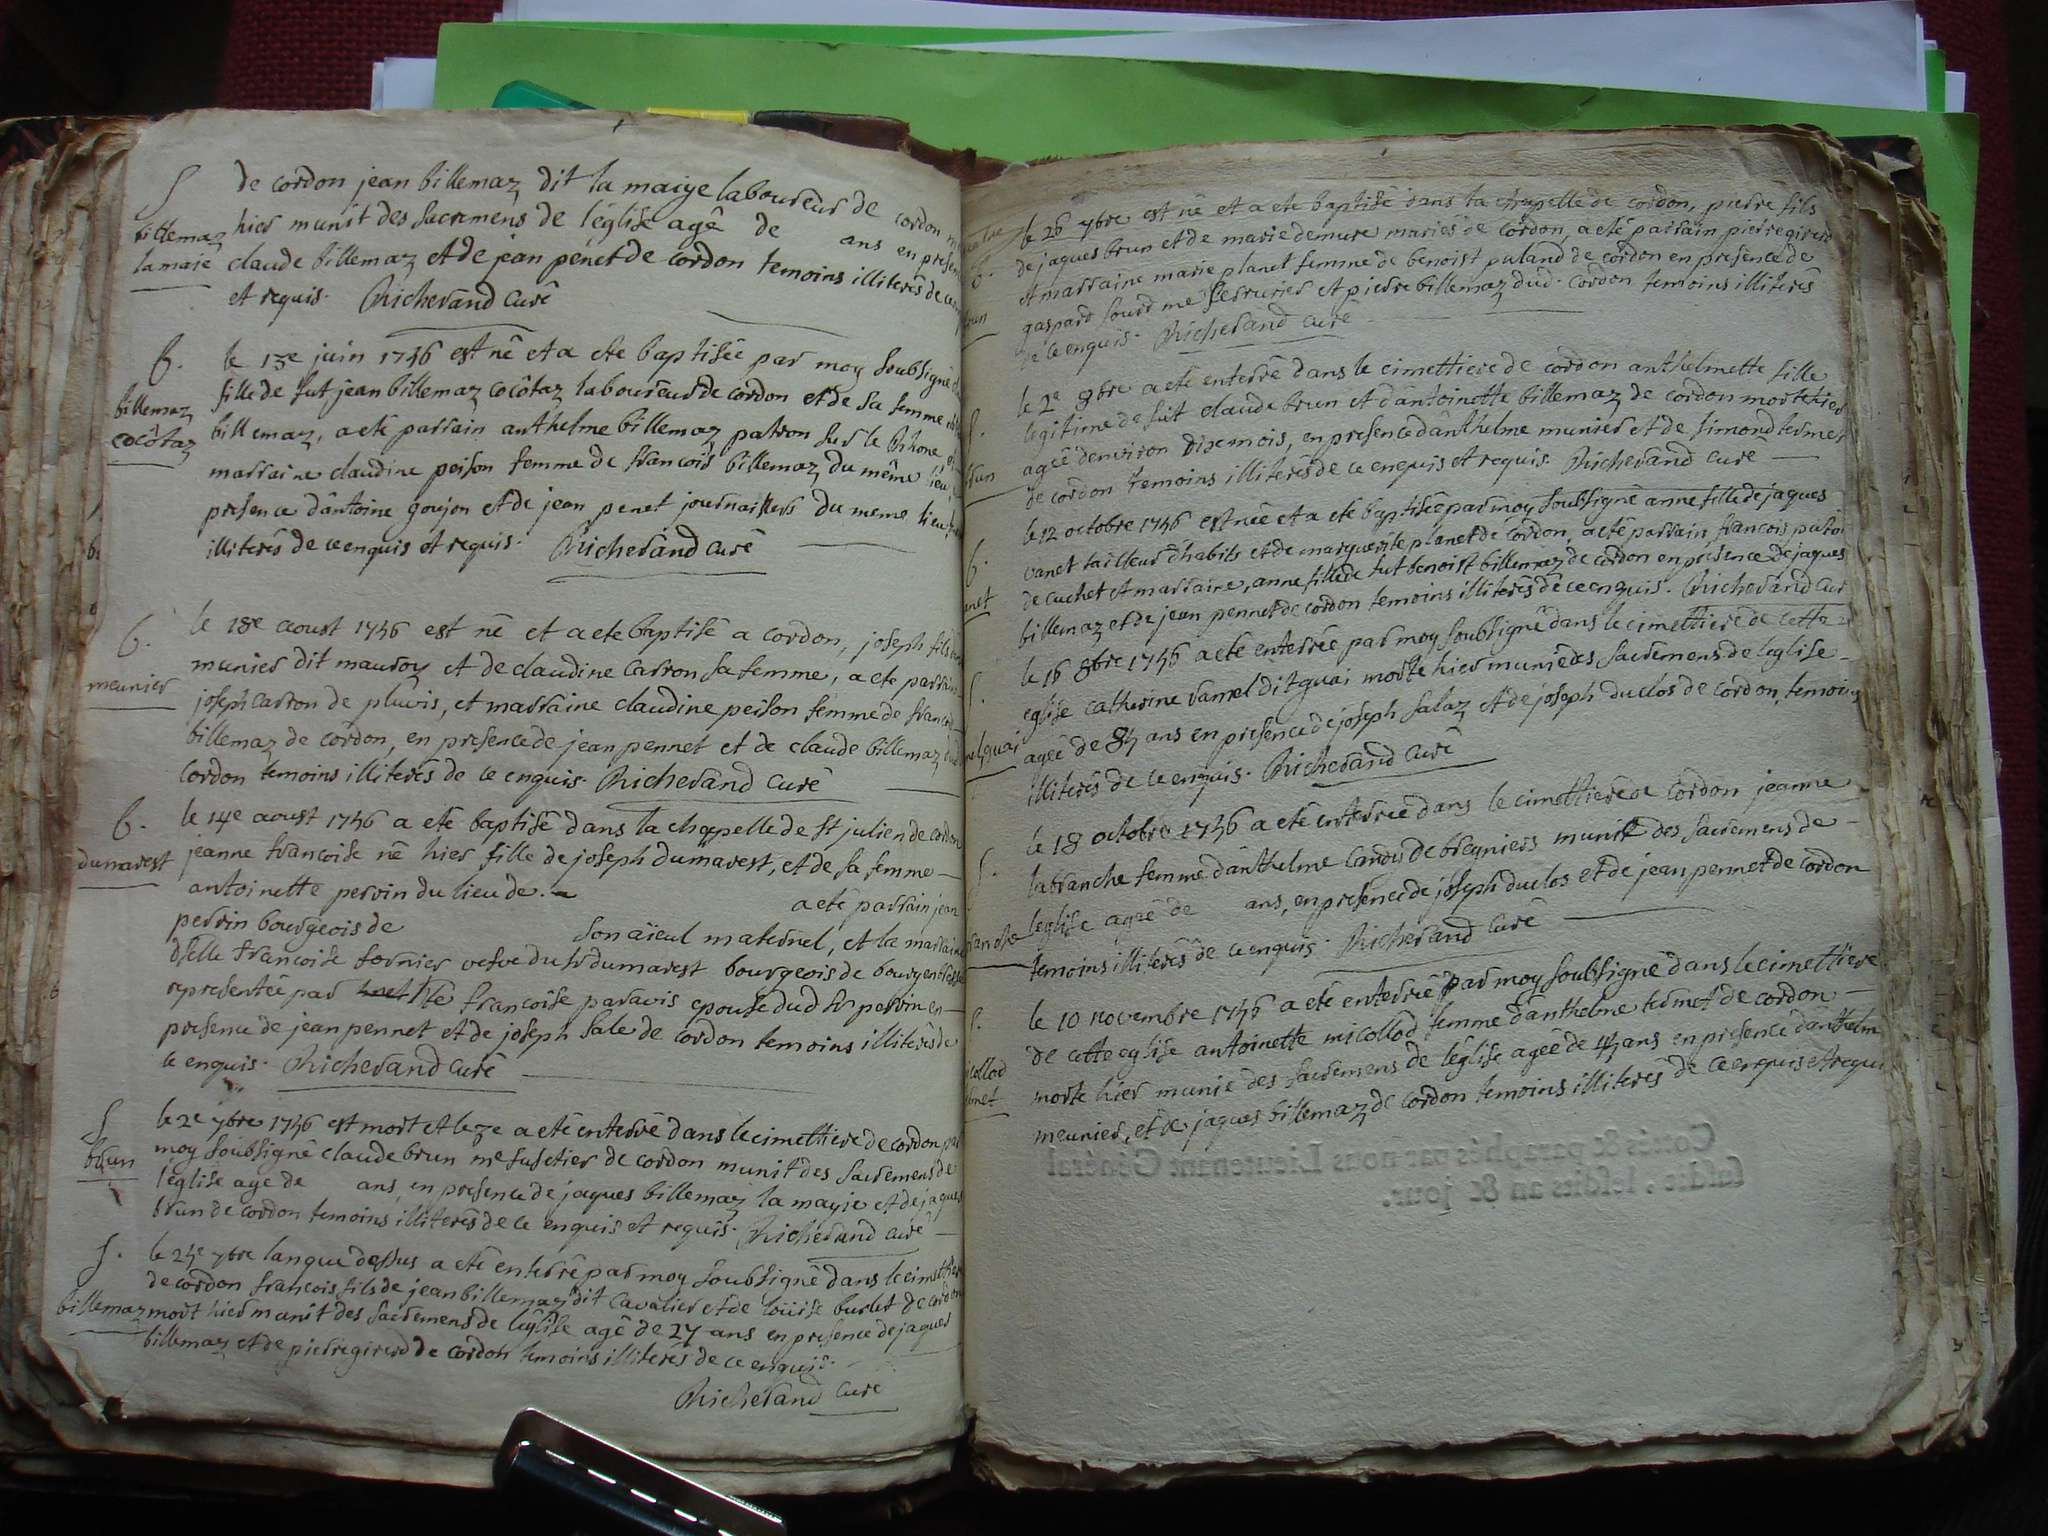 S
de cordon jean billemaz dit la maige laboureur de cordon
billemaz hier munit des sacremens de l'église agé de ans en
la maie claude billemaz et de jean pénet de cordon temoins illiterés de
et requis. Richerand curé
b. le 13e juin 1746 est né et a ete baptisée par moy soubsigné
billemaz fille de fut jean billemaz cocôtaz laboureur de cordon et de sa femme
cocôtaz billemaz, a eté parrain anthelme billemaz patron sur le Rhone
marraine claudine peison femme de francois billemaz du même lieu
presence d'antoine goujon et de jean penet journaillers du meme lieu
illiterés de ce enquis et requis. Richerand curé
b. le 18e aoust 1746 est né et a ete baptisé a cordon, joseph fils
meunier munier dit mauroy et de claudine carron sa femme, a ete parrain
joseph carron de pluvis, et marraine claudine peison femme de francois
billemaz de cordon, en presence de jean pennet et de claude billemaz
cordon temoins illiterés de ce enquis. Richerand curé
b. le 14e aoust 1746 a eté baptisé dans la chapelle de st julien de cordon
dumarest jeanne francoise né hier fille de joseph dumarest, et de sa femme
antoinette perrin du lieu de. a eté parrain jean
perrin bourgeois de son aïeul maternel, et la marraine
delle francoise fornier vefve du sr dumarest bourgeois de bourg en
representée par francoise paravis epouse dud sr perrin en
presence de jean pennet et de joseph sale de cordon temoins illiterés de
ce enquis. Richerand curé
S
le 2e 7bre 1746 est mort et le 3e a eté enterré dans le cimettiere de cordon par
brun moy soubsigné claude brun me fustier de cordon munit des sacremens de
l'eglise agé de ans, en presence de jaques billemaz la mayie et de jaques
brun de cordon temoins illiterés de ce enquis et requis. Richerand curé
S. le 24e 7bre lan que dessus a eté enterré par moy soubsigné dans le cimettiere
de cordon francois fils de jean billemaz dit cavalier et de loüise burlet de cordon
billemaz mort hier munit des sacremens de l'église agé de 27 ans en presence de jaques
billemaz et de pierre girerd de cordon temoins illiterés de ce enquis.
Richerand curé
le 26 7bre est né et a eté baptisé dans la chapelle de cordon, pierre fils
b. de jaques brun et de marie demure mariés de cordon, a eté parrain pierre girerd
et marraine marie planet femme de benoist puland de cordon en presence de
gaspard sourd me serrurier et pierre billemaz dud. cordon temoins illiterés
de ce enquis. Richerand curé
le 2e 8bre a eté enterré dans le cimettiere de cordon anthelmette fille
S. legitime de fut claude brun et d'antoinette billemaz de cordon morte hier
agée d'environ dixe mois, en presence d'anthelme munier et de simond termet
brun de cordon temoins illiterés de ce enquis et requis. Richerand curé
le 12 octobre 1746 est née et a eté baptisée par moy soubsigné anne fille de jaques
b. vanet tailleur d'habits et de marguerite planet de cordon, a eté parrain francois
de cuchet et marraine, anne fille de fut benoist billemaz de cordon en presence de jaques
billemaz et de jean pennet de cordon temoins illiterés de ce enquis. Richerand cur
le 16 8bre 1746 a eté enterrée par moy soubsigné dans le cimettiere de cette
S. eglise catherine ramel dit quai morte hier munie des sacremens de l'eglise
quai agée de 84 ans en presence de joseph salaz et de joseph duclos de cordon, temoins
illiterés de ce enquis. Richerand curé
le 18 octobre 1746 a eté enterrée dans le cimettiere de cordon jeanne
S. lafranche femme d'anthelme candy de breyniers munit des sacremens de
l'eglise agée de ans, en presence de joseph duclos et de jean pennet de cordon
temoins illiterés de ce enquis. Richerand curé
S. le 10 novembre 1746 a eté enterrée par moy soubsigné dans le cimettiere
de cette eglise antoinette micollod femme d'anthelme termet de cordon
morte hier munie des sacremens de l'église agée de 44 ans en presence d'anthelm
meunier, et de jaques billemaz de cordon temoins illiterés de ce enquis et requi
Cottés & paraphés par nous Lieutenant Général
susdit, lesdits an & jour.